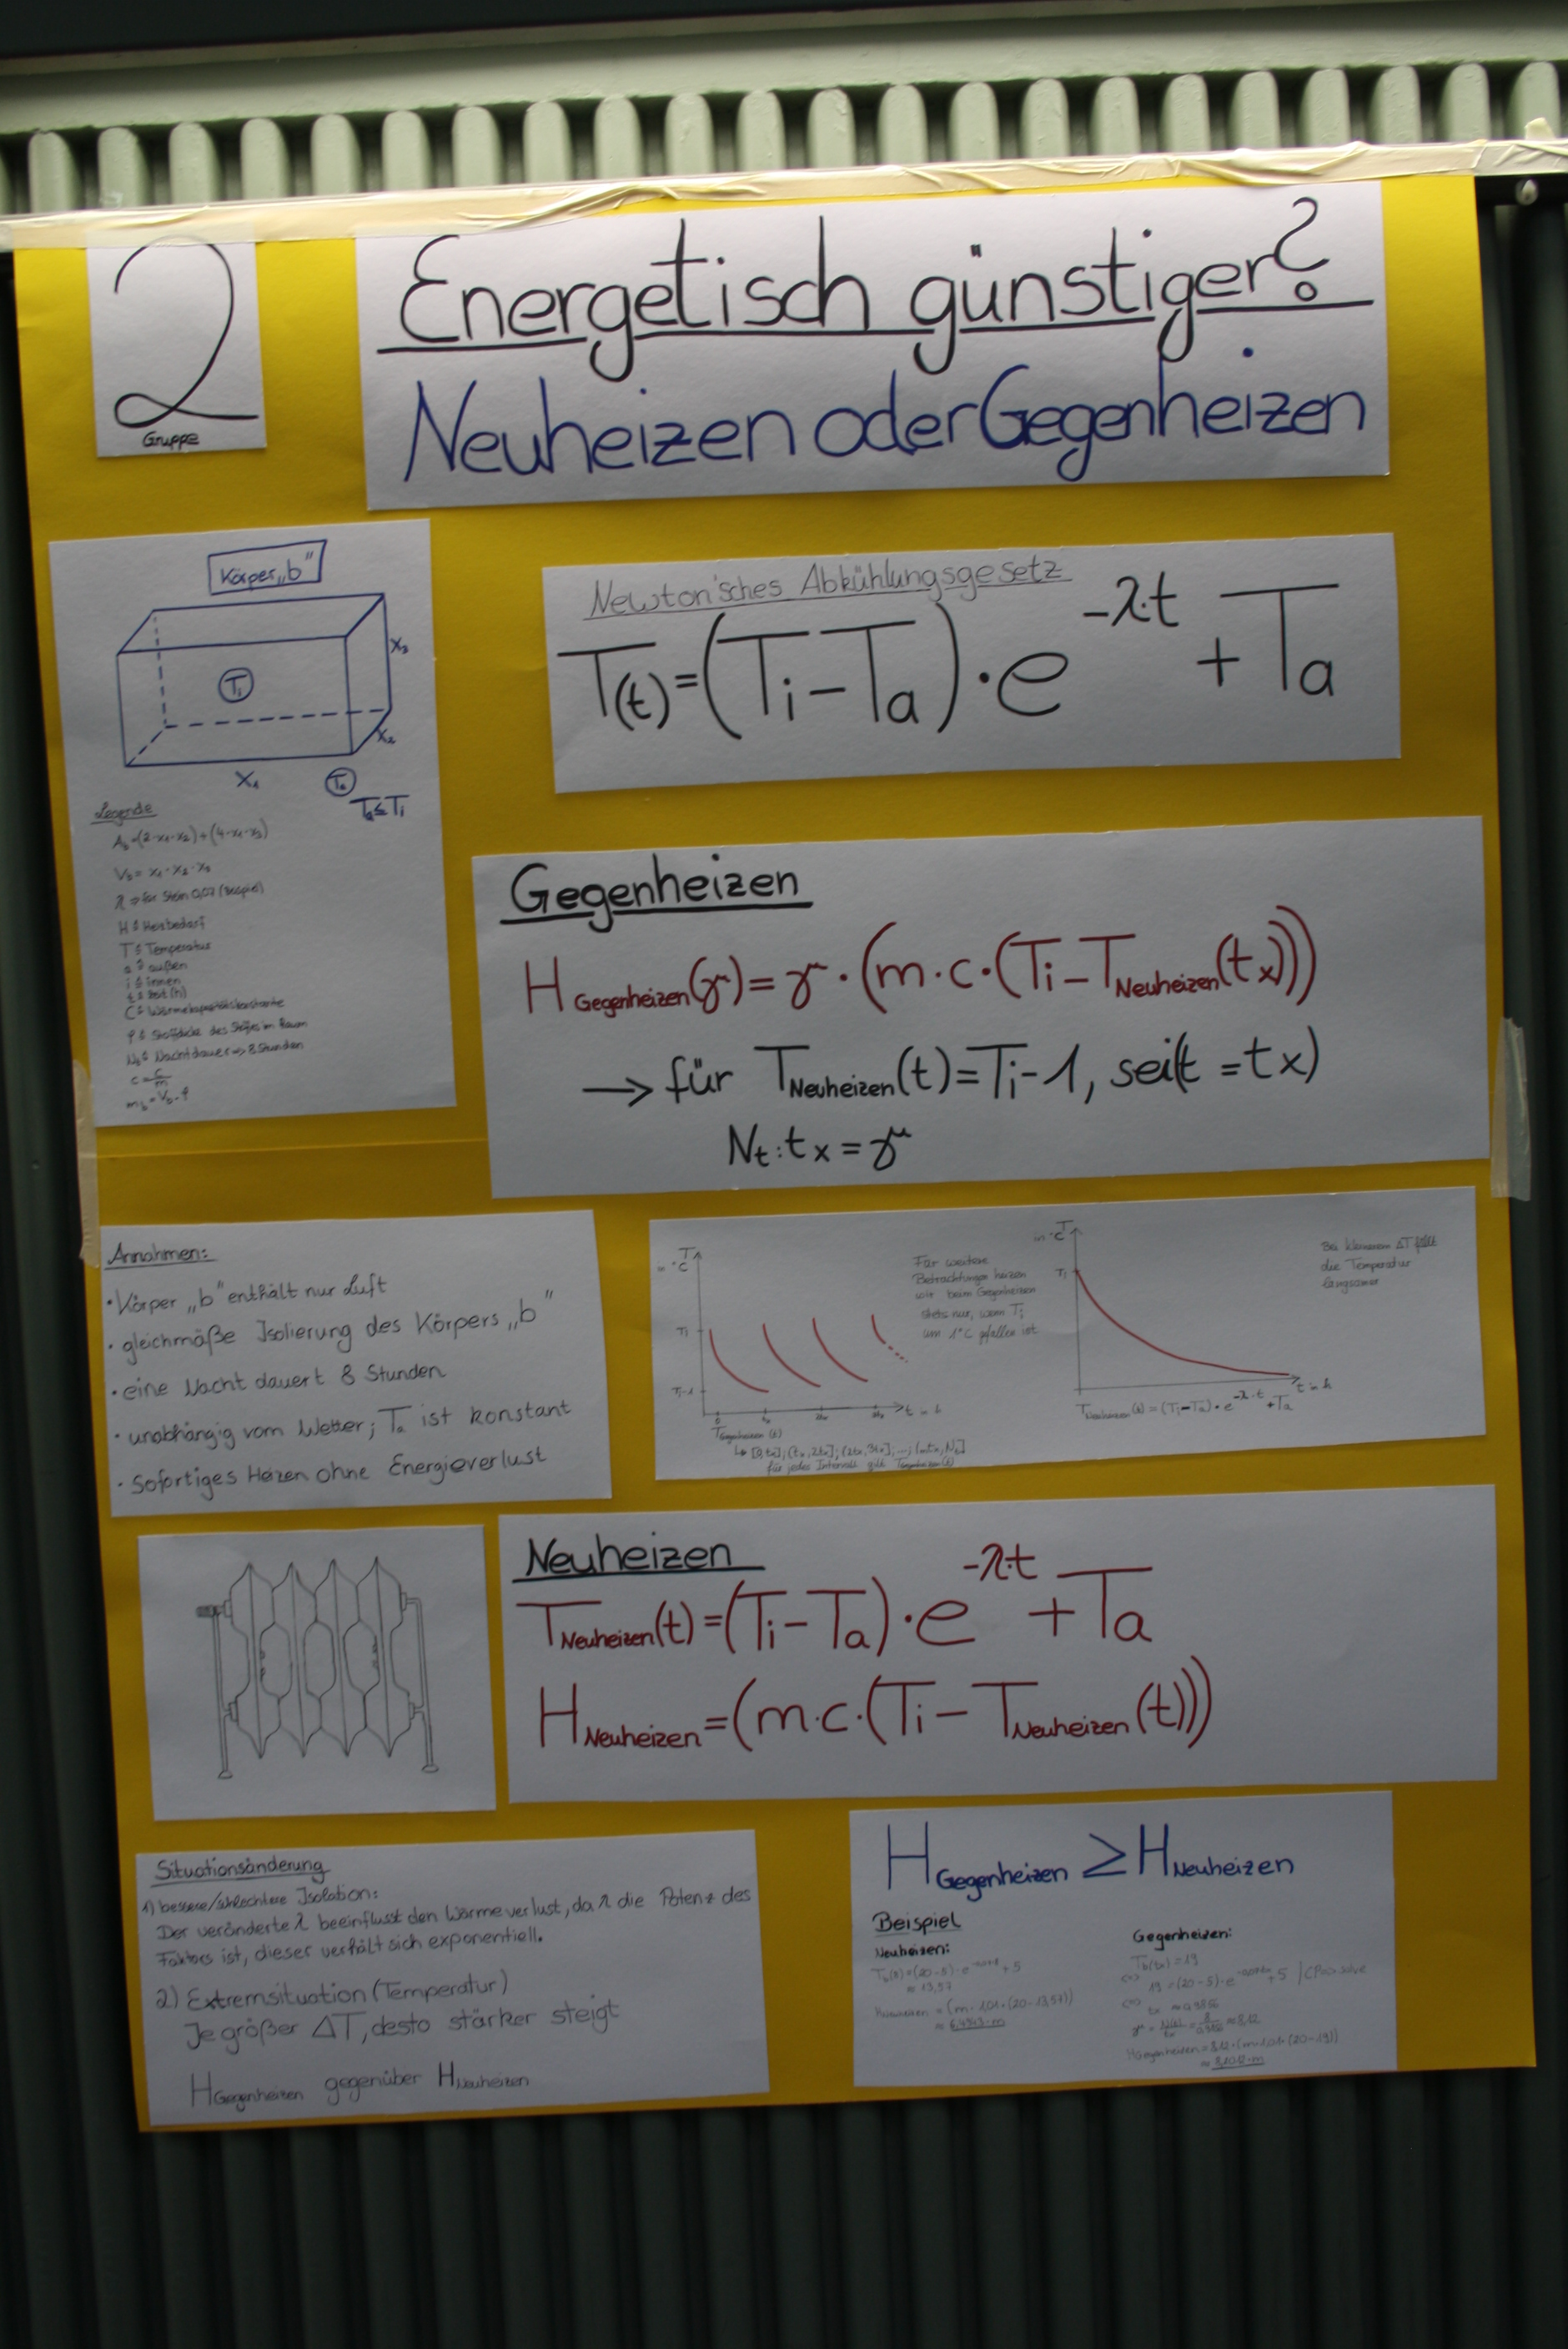 2
Gruppe
Energetisch günstiger?
Neuheizen oder Gegenheizen
Körper „b"
Ti
x3
x2
x1
Ta
Ta ≤ Ti
Legende
Ab=(2·x1·x2)+(4·x1·x3)
Vb = x1·x2·x3
λ ⇒ für Stein 0,07 (Beispiel)
H ≙ Heizbedarf
T ≙ Temperatur
a ≙ außen
i ≙ innen
t ≙ Zeit (h)
C ≙ Wärmekapazitätskonstante
ρ ≙ Stoffdichte des Stoffes im Raum
Nt ≙ Nachtdauer ⇒ 8 Stunden
c = C/m
mb = Vb·ρ
Newton'sches Abkühlungsgesetz
T(t)=(Ti−Ta)·e^(−λ·t)+Ta
Gegenheizen
H Gegenheizen(γ)=γ·(m·c·(Ti−TNeuheizen(tx)))
→ für TNeuheizen(t)=Ti−1, sei(t=tx)
Nt:tx=γ
Annahmen:
· Körper „b" enthält nur Luft
· gleichmäße Isolierung des Körpers „b"
· eine Nacht dauert 8 Stunden
· unabhängig vom Wetter; Ta ist konstant
· sofortiges Heizen ohne Energieverlust
T
in °C
Ti
Ti-1
0 tx 2tx 3tx t in h
TGegenheizen (t)
↳ [0,tx]; (tx,2tx]; (2tx,3tx]; ...; (ntx,Nt]
für jedes Intervall gilt TNeuheizen(t)
Für weitere
Betrachtungen heizen
wir beim Gegenheizen
stets nur, wenn Ti
um 1°C gefallen ist
T
in °C
Ti
t in h
TNeuheizen(t) = (Ti−Ta)·e^(−λ·t)+Ta
Bei kleinerem ΔT fällt
die Temperatur
langsamer
Neuheizen
TNeuheizen(t)=(Ti−Ta)·e^(−λ·t)+Ta
HNeuheizen=(m·c·(Ti−TNeuheizen(t)))
Situationsänderung
1) bessere/schlechtere Isolation:
Der veränderte λ beeinflusst den Wärmeverlust, da λ die Potenz des
Faktors ist, dieser verhält sich exponentiell.
2) Extremsituation (Temperatur)
Je größer ΔT, desto stärker steigt
HGegenheizen gegenüber HNeuheizen
HGegenheizen ≥ HNeuheizen
Beispiel
Neuheizen:
Tb(8)=(20−5)·e^(−0,07·8)+5
≈ 13,57
HNeuheizen = (m·1,01·(20−13,57))
≈ 6,4943·m
Gegenheizen:
Tb(tx)=19
⇔ 19=(20−5)·e^(−0,07·tx)+5 |CP⇒solve
⇔ tx ≈ 0,9856
≈ 8,12
HGegenheizen = 8,12·(m·1,01·(20−19))
≈ 8,2012·m